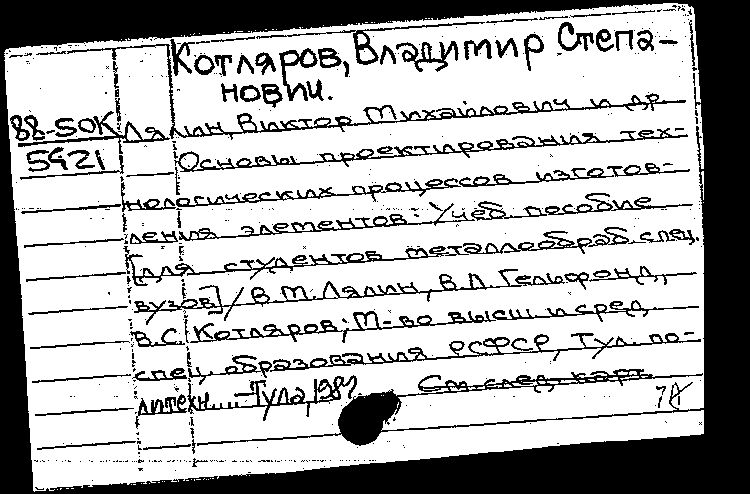 Котляров, Владимир Степа-
нович.
88-50К
5421
Лялин, Виктор Михайлович и др.
Основы проектирования тех-
нологических процессов изготов-
ления элементов: Учеб. пособие
[для студентов металлообраб. спец.
вузов] / В.М. Лялин, В.Л. Гельфонд,
В.С. Котляров; М-во высш. и сред.
спец. образования РСФСР, Тул. по-
литехн... -Тула, 198
См. след. карт.